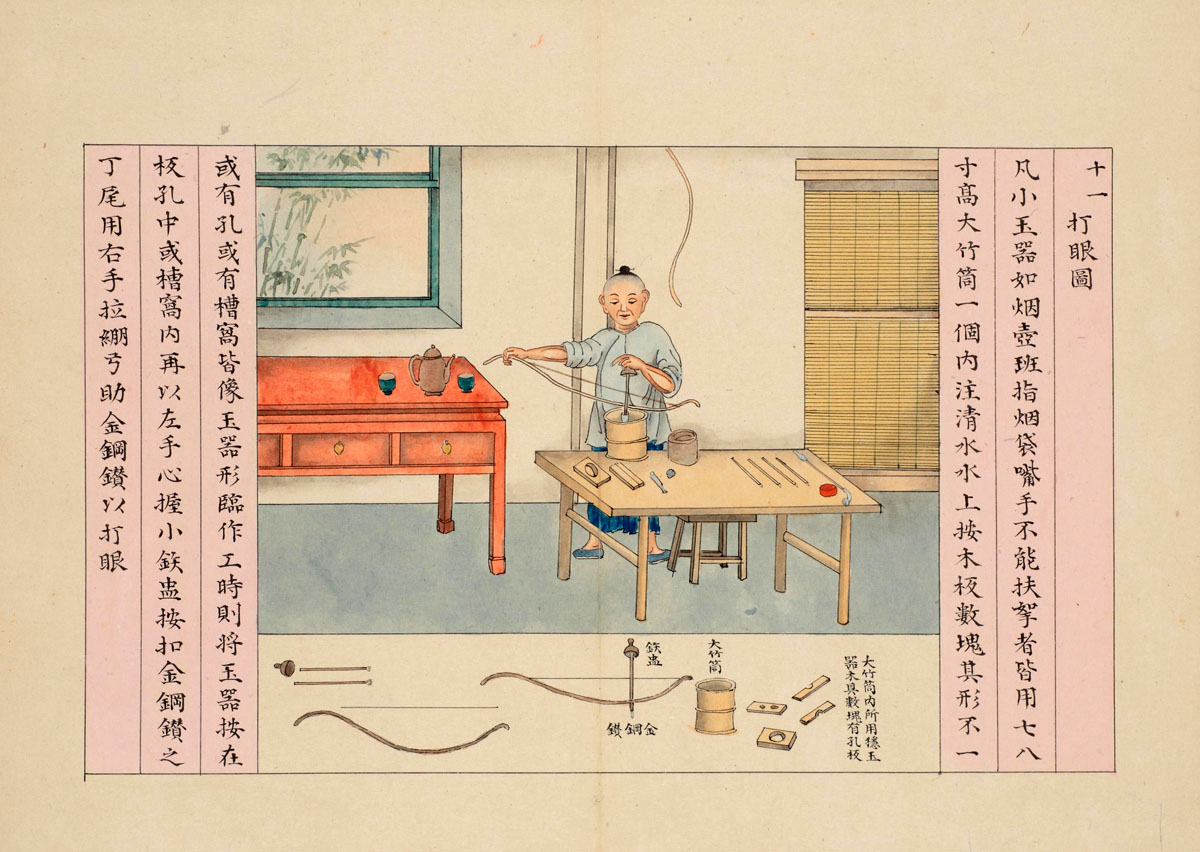 十一 打眼圖
凡小玉器如烟壺班指烟袋嘴手不能扶拏者皆用七八
寸高大竹筒一個內注清水水上按木板數塊其形不一
或有孔或有槽窩皆像玉器形臨作工時則将玉器按在
板孔中或槽窩內再以左手心握小鉄盅按扣金鋼鑽之
丁尾用右手拉綳弓助金鋼鑽以打眼
大竹筒內所用穩玉
器木具數塊有孔板
大竹筒
鉄盅
金鋼鑽